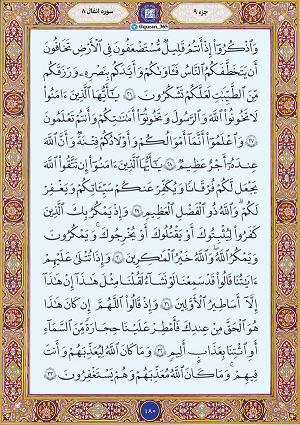 جزء ۹
@quran_365
سوره انفال ۸
وَٱذۡكُرُوٓاْ إِذۡ أَنتُمۡ قَلِيلٞ مُّسۡتَضۡعَفُونَ فِي ٱلۡأَرۡضِ تَخَافُونَ
أَن يَتَخَطَّفَكُمُ ٱلنَّاسُ فَـَٔاوَىٰكُمۡ وَأَيَّدَكُم بِنَصۡرِهِۦ وَرَزَقَكُم
مِّنَ ٱلطَّيِّبَٰتِ لَعَلَّكُمۡ تَشۡكُرُونَ ٢٦ يَٰٓأَيُّهَا ٱلَّذِينَ ءَامَنُواْ
لَا تَخُونُواْ ٱللَّهَ وَٱلرَّسُولَ وَتَخُونُوٓاْ أَمَٰنَٰتِكُمۡ وَأَنتُمۡ تَعۡلَمُونَ
٢٧ وَٱعۡلَمُوٓاْ أَنَّمَآ أَمۡوَٰلُكُمۡ وَأَوۡلَٰدُكُمۡ فِتۡنَةٞ وَأَنَّ ٱللَّهَ
عِندَهُۥٓ أَجۡرٌ عَظِيمٞ ٢٨ يَٰٓأَيُّهَا ٱلَّذِينَ ءَامَنُوٓاْ إِن تَتَّقُواْ ٱللَّهَ
يَجۡعَل لَّكُمۡ فُرۡقَانٗا وَيُكَفِّرۡ عَنكُمۡ سَيِّـَٔاتِكُمۡ وَيَغۡفِرۡ
لَكُمۡۗ وَٱللَّهُ ذُو ٱلۡفَضۡلِ ٱلۡعَظِيمِ ٢٩ وَإِذۡ يَمۡكُرُ بِكَ ٱلَّذِينَ
كَفَرُواْ لِيُثۡبِتُوكَ أَوۡ يَقۡتُلُوكَ أَوۡ يُخۡرِجُوكَۚ وَيَمۡكُرُونَ
وَيَمۡكُرُ ٱللَّهُۖ وَٱللَّهُ خَيۡرُ ٱلۡمَٰكِرِينَ ٣٠ وَإِذَا تُتۡلَىٰ عَلَيۡهِمۡ
ءَايَٰتُنَا قَالُواْ قَدۡ سَمِعۡنَا لَوۡ نَشَآءُ لَقُلۡنَا مِثۡلَ هَٰذَآ إِنۡ هَٰذَآ
إِلَّآ أَسَٰطِيرُ ٱلۡأَوَّلِينَ ٣١ وَإِذۡ قَالُواْ ٱللَّهُمَّ إِن كَانَ هَٰذَا
هُوَ ٱلۡحَقَّ مِنۡ عِندِكَ فَأَمۡطِرۡ عَلَيۡنَا حِجَارَةٗ مِّنَ ٱلسَّمَآءِ
أَوِ ٱئۡتِنَا بِعَذَابٍ أَلِيمٖ ٣٢ وَمَا كَانَ ٱللَّهُ لِيُعَذِّبَهُمۡ وَأَنتَ
فِيهِمۡۚ وَمَا كَانَ ٱللَّهُ مُعَذِّبَهُمۡ وَهُمۡ يَسۡتَغۡفِرُونَ ٣٣
۱۸۰